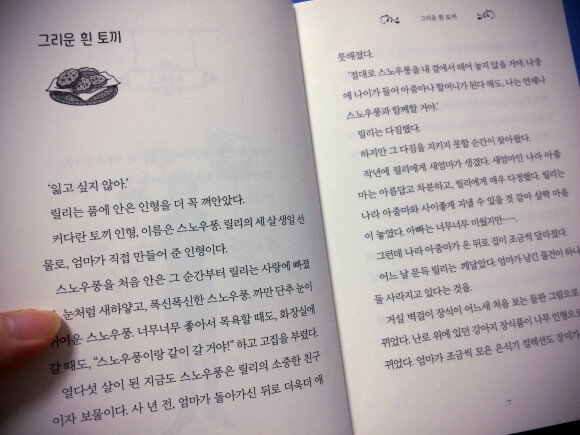 그리운 흰 토끼
'잃고 싶지 않아.'
릴리는 품에 안은 인형을 더 꼭 껴안았다.
커다란 토끼 인형, 이름은 스노우풍. 릴리의 세 살 생일 선
물로, 엄마가 직접 만들어 준 인형이다.
스노우풍을 처음 안은 그 순간부터 릴리는 사랑에 빠졌
눈처럼 새하얗고, 폭신폭신한 스노우풍. 까만 단추 눈이
귀여운 스노우풍. 너무너무 좋아서 목욕할 때도, 화장실에
갈 때도, "스노우풍이랑 같이 갈 거야!" 하고 고집을 부렸다.
열다섯 살이 된 지금도 스노우풍은 릴리의 소중한 친구
이자 보물이다. 사 년 전, 엄마가 돌아가신 뒤로 더욱더 애
그리운 흰 토끼
틋해졌다.
'절대로 스노우풍을 내 곁에서 떼어 놓지 않을 거야. 나중
에 나이가 들어 아줌마나 할머니가 된다 해도, 나는 언제나
스노우풍과 함께할 거야.'
릴리는 다짐했다.
하지만 그 다짐을 지키지 못할 순간이 찾아왔다.
작년에 릴리에게 새엄마가 생겼다. 새엄마인 나라 아줌
마는 아름답고 차분하고, 릴리에게 매우 다정했다. 릴리는
나라 아줌마와 사이좋게 지낼 수 있을 것 같아 살짝 마음
이 놓였다. 아빠는 너무너무 미웠지만…….
그런데 나라 아줌마가 온 뒤로 집이 조금씩 달라졌다.
어느 날 문득 릴리는 깨달았다. 엄마가 남긴 물건이 하나
둘 사라지고 있다는 것을.
거실 벽걸이 장식이 어느새 처음 보는 들판 그림으로
뀌었다. 난로 위에 있던 강아지 장식품이 나무 인형으로
뀌었다. 엄마가 조금씩 모은 은식기 컬렉션도 장미가
7